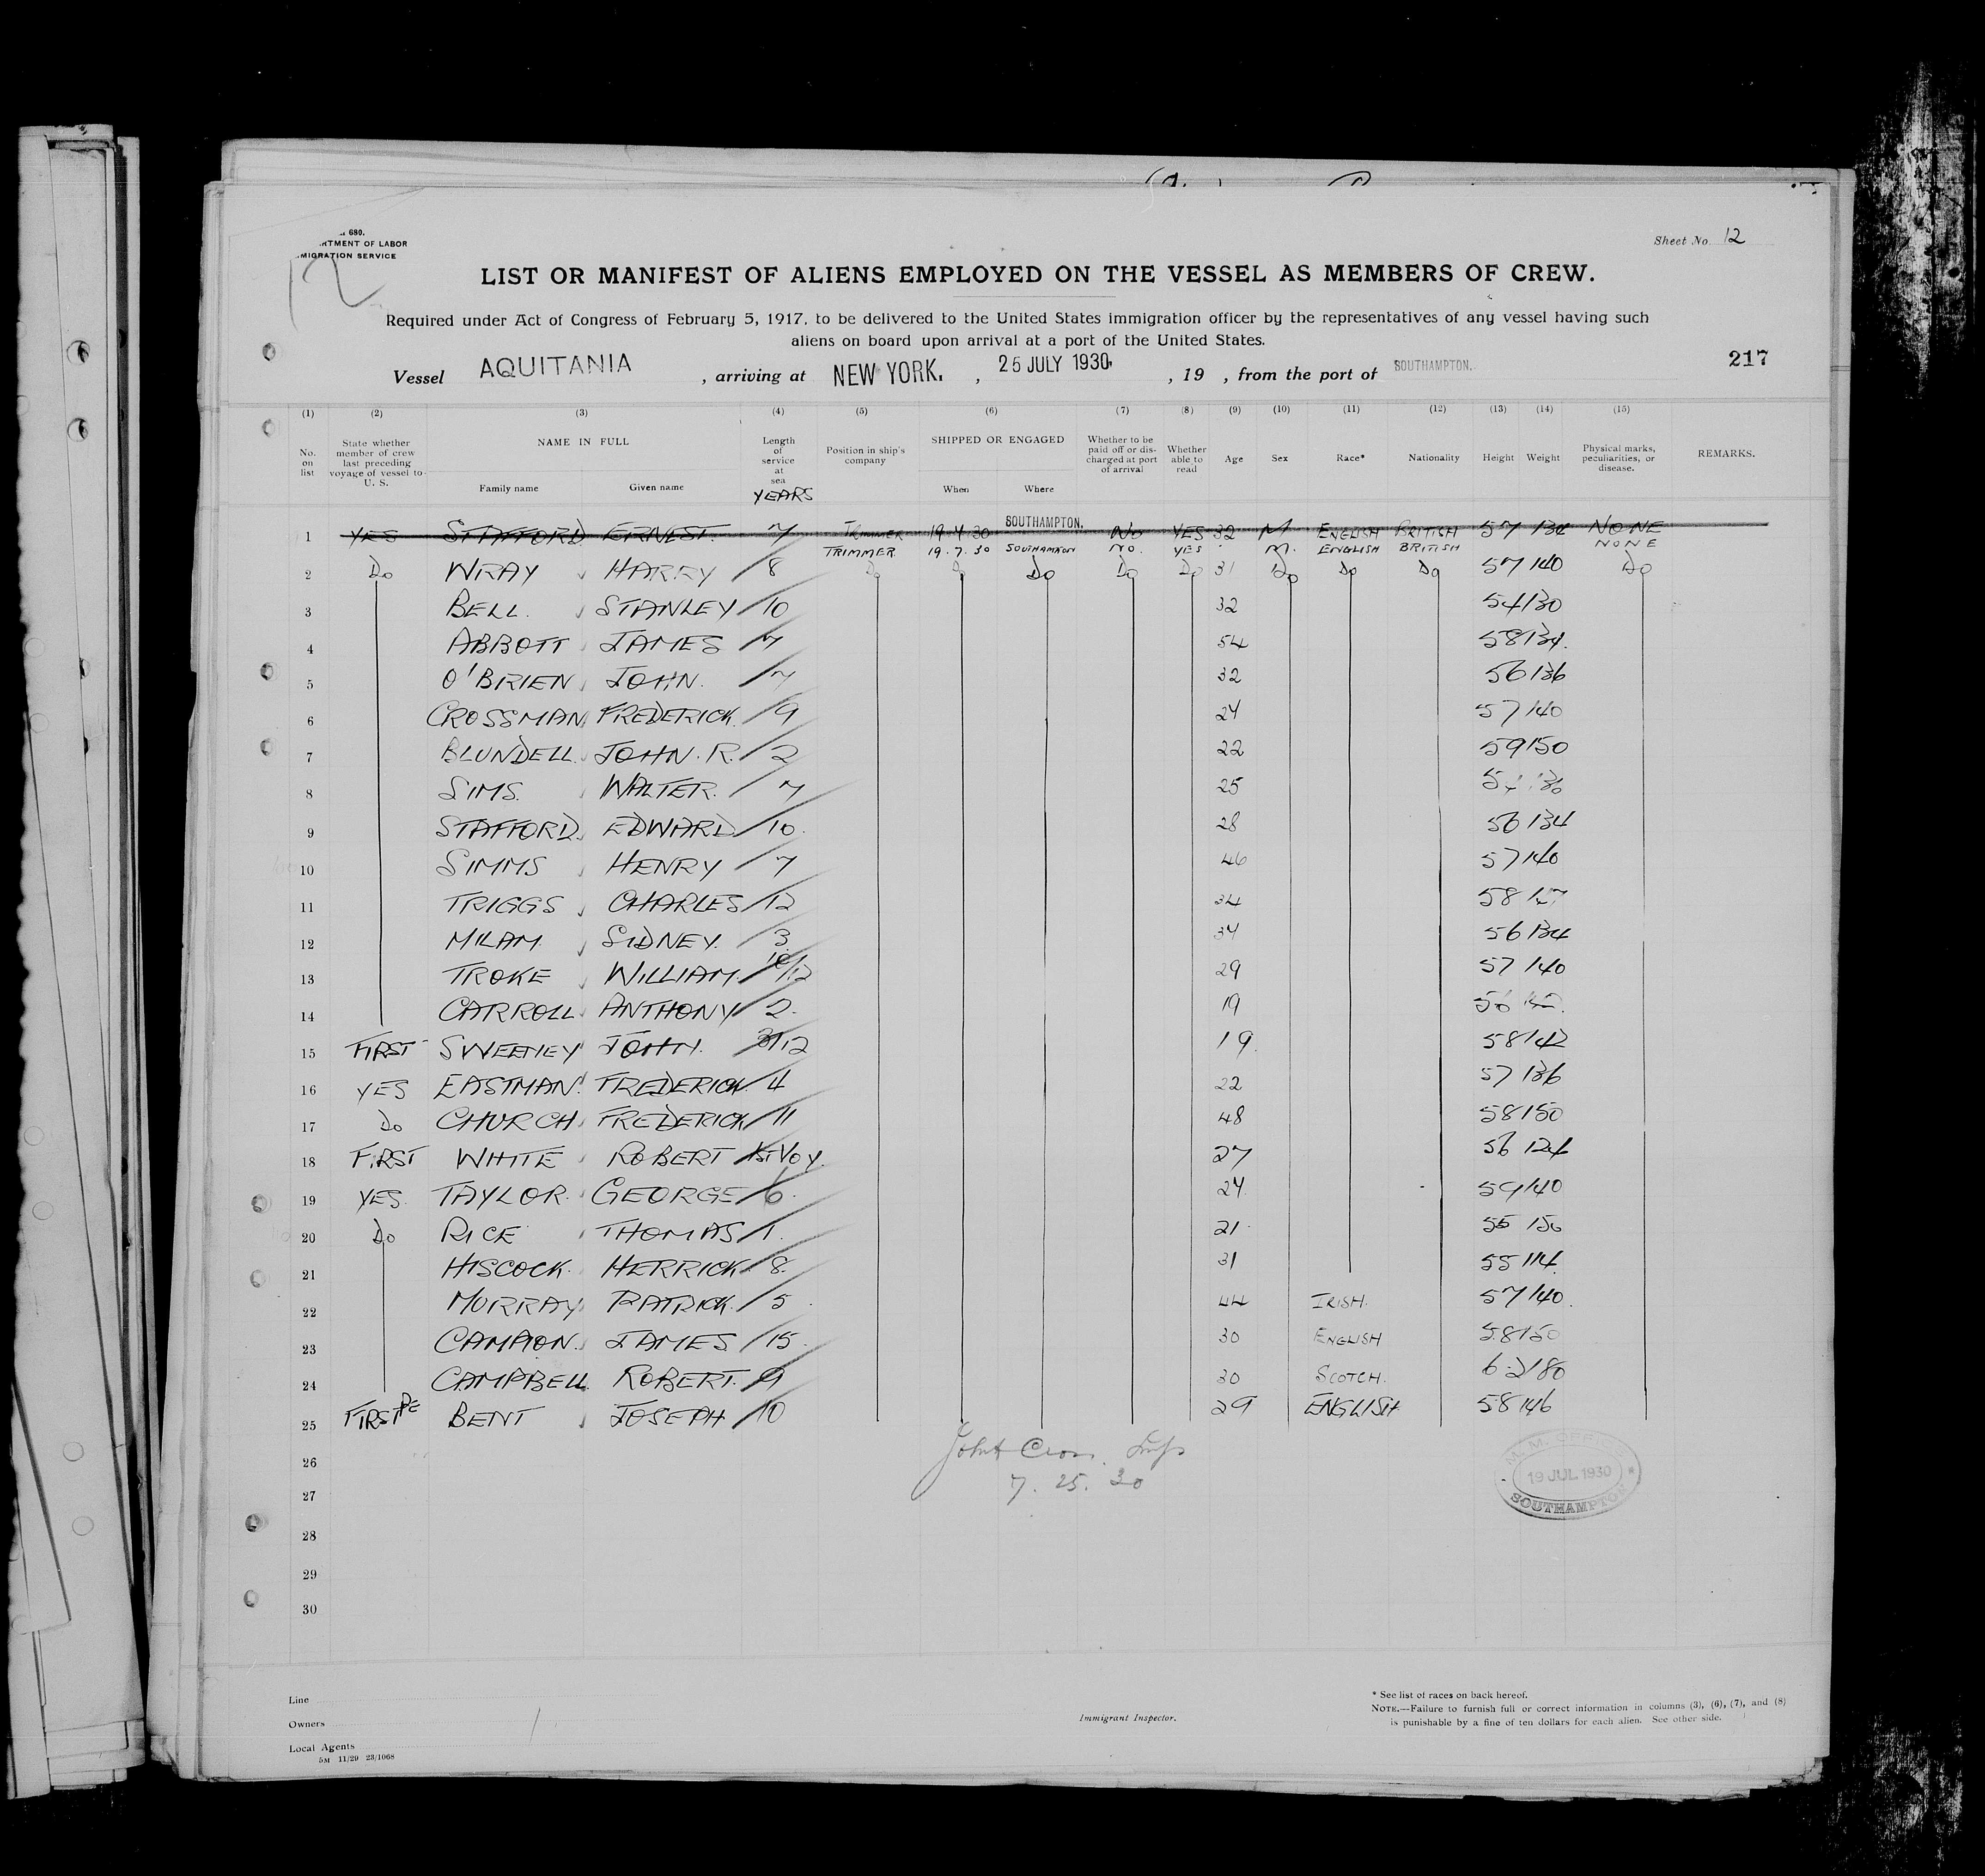 680.
RTMENT OF LABOR
MIGRATION SERVICE
12
Sheet No 12
LIST OR MANIFEST OF ALIENS EMPLOYED ON THE VESSEL AS MEMBERS OF CREW.
Required under Act of Congress of February 5, 1917, to be delivered to the United States immigration officer by the representatives of any vessel having such
aliens on board upon arrival at a port of the United States.
Vessel AQUITANIA , arriving at NEW YORK. , 25 JULY 1930 , 19 , from the port of SOUTHAMPTON. 217
(1) (2) (3) (4) (5) (6) (7) (8) (9) (10) (11) (12) (13) (14) (15)
No. on list State whether member of crew last preceding voyage of vessel to U. S. NAME IN FULL Family name Given name Length of service at sea YEARS Position in ship's company SHIPPED OR ENGAGED When Where Whether to be paid off or discharged at port of arrival Whether able to read Age Sex Race* Nationality Height Weight Physical marks, peculiarities, or disease. REMARKS.
1 YES STAFFORD ERNEST 7 TRIMMER 19.7.30 SOUTHAMPTON. NO YES 32 M ENGLISH BRITISH 57 134 NONE
TRIMMER 19.7.30 SOUTHAMPTON NO. YES M. ENGLISH BRITISH NONE
2 Do WRAY HARRY 8 Do Do Do Do Do 31 Do Do Do 57 140 Do
3 BELL. STANLEY 10 32 54 130
4 ABBOTT JAMES 7 54 58 134.
5 O'BRIEN JOHN. 7 32 56 136
6 CROSSMAN FREDERICK. 9 24 57 140
7 BLUNDELL. JOHN. R. 2 22 59 150
8 SIMS. WALTER. 7 25
9 STAFFORD. EDWARD 10. 28 56 134
10 SIMMS HENRY 7 46 57 140
11 TRIGGS CHARLES 12 34 58
12 MILAM. SIDNEY. 3 34 56 134
13 TROKE WILLIAM. 10/12 29 57 140
14 CARROLL. ANTHONY 2. 19
15 FIRST SWEENEY JOHN. 3/12 19. 58 142
16 YES EASTMAN. FREDERICK 4 22 57 136
17 Do CHURCH FREDERICK 11 48 58 150
18 FIRST WHITE ROBERT 1ST VOY. 27 56 124
19 YES. TAYLOR. GEORGE 6. 24. 59 140
20 Do RICE THOMAS 1. 21 55 150
21 HISCOCK. HERRICK. 8. 31 55 114.
22 MURRAY PATRICK. 5 44 IRISH. 57 140.
23 CAMPION. JAMES 15. 30 ENGLISH 58 150
24 CAMPBELL ROBERT. 9 30 SCOTCH. 6.2 180
25 FIRST BENT JOSEPH 10 29 ENGLISH 58 146
26
7. 25. 30
27
28
29
30
M. M. OFFICE
19 JUL 1930
SOUTHAMPTON
Line
Owners
Local Agents
5M 11/29 23/1068
Immigrant Inspector.
* See list of races on back hereof.
NOTE.—Failure to furnish full or correct information in columns (3), (6), (7), and (8)
is punishable by a fine of ten dollars for each alien. See other side.